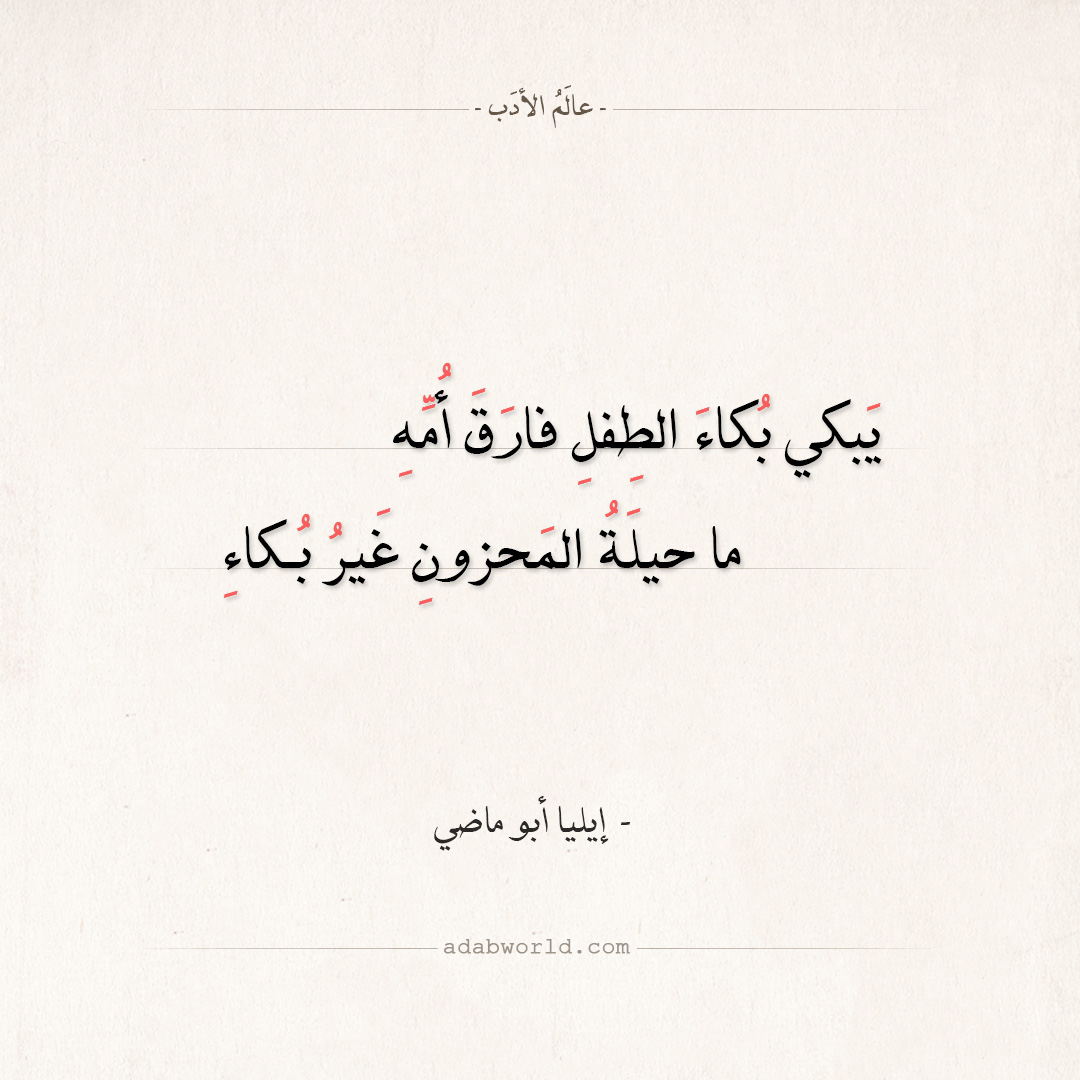 - عالَمُ الأدَب -
يَبكي بُكاءَ الطِفلِ فارَقَ أُمَّهِ
ما حيلَةُ المَحزونِ غَيرُ بُـكاءِ
- إيليا أبو ماضي
adabworld.com